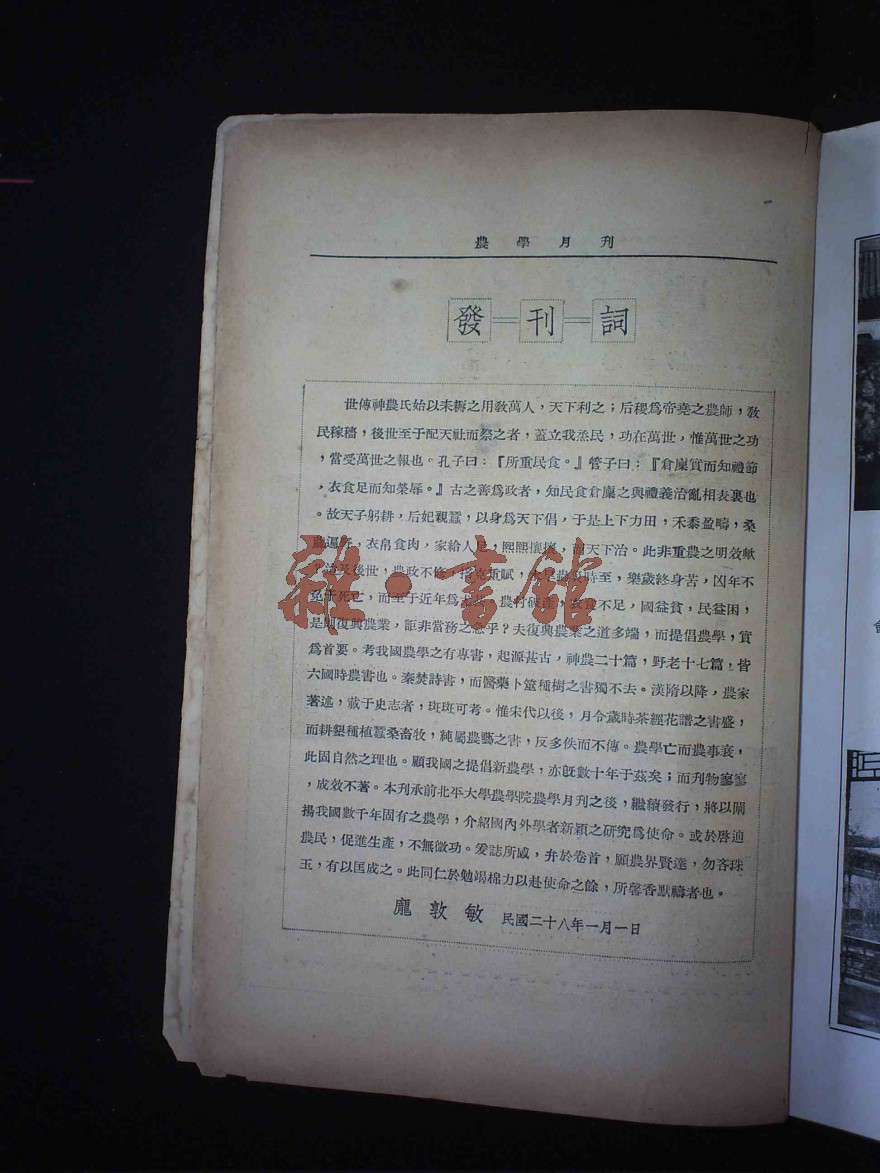 農學月刊
發刊詞
世傳神農氏始以耒耨之用敎萬人，天下利之；后稷爲帝堯之農師，敎
民稼穡，後世至于配天社而祭之者，蓋立我烝民，功在萬世，惟萬世之功
，當受萬世之報也。孔子曰：『所重民食。』管子曰：『倉廩實而知禮節
，衣食足而知榮辱。』古之善爲政者，知民食倉廩之與禮義治亂相表裏也
。故天子躬耕，后妃親蠶，以身爲天下倡，于是上下力田，禾黍盈疇，桑
遍野，衣帛食肉，家給人足，熙熙攘攘，而天下治。此非重農之明效歟
？迨及後世，農政不修，掊克重賦，水旱蟲災時至，樂歲終身苦，凶年不
免于死亡，而至于近年爲尤甚。農村破產，衣食不足，國益貧，民益困，
是則復興農業，詎非當務之急乎？夫復興農業之道多端，而提倡農學，實
爲首要。考我國農學之有專書，起源甚古，神農二十篇，野老十七篇，皆
六國時農書也。秦焚詩書，而醫藥卜筮種樹之書獨不去。漢隋以降，農家
著述，載于史志者，斑斑可考。惟宋代以後，月令歲時茶經花譜之書盛，
而耕墾種植蠶桑畜牧，純屬農藝之書，反多佚而不傳。農學亡而農事衰，
此固自然之理也。顧我國之提倡新農學，亦旣數十年于茲矣；而刊物寥寥
，成效不著。本刊承前北平大學農學院農學月刊之後，繼續發行，將以闡
揚我國數千年固有之農學，介紹國內外學者新穎之研究爲使命。或於啓迪
農民，促進生產，不無微功。爰誌所感，弁於卷首，願農界賢達，勿吝珠
玉，有以匡成之。此同仁於勉竭棉力以赴使命之餘，所馨香默禱者也。
龐敦敏 民國二十八年一月一日
雜·書館